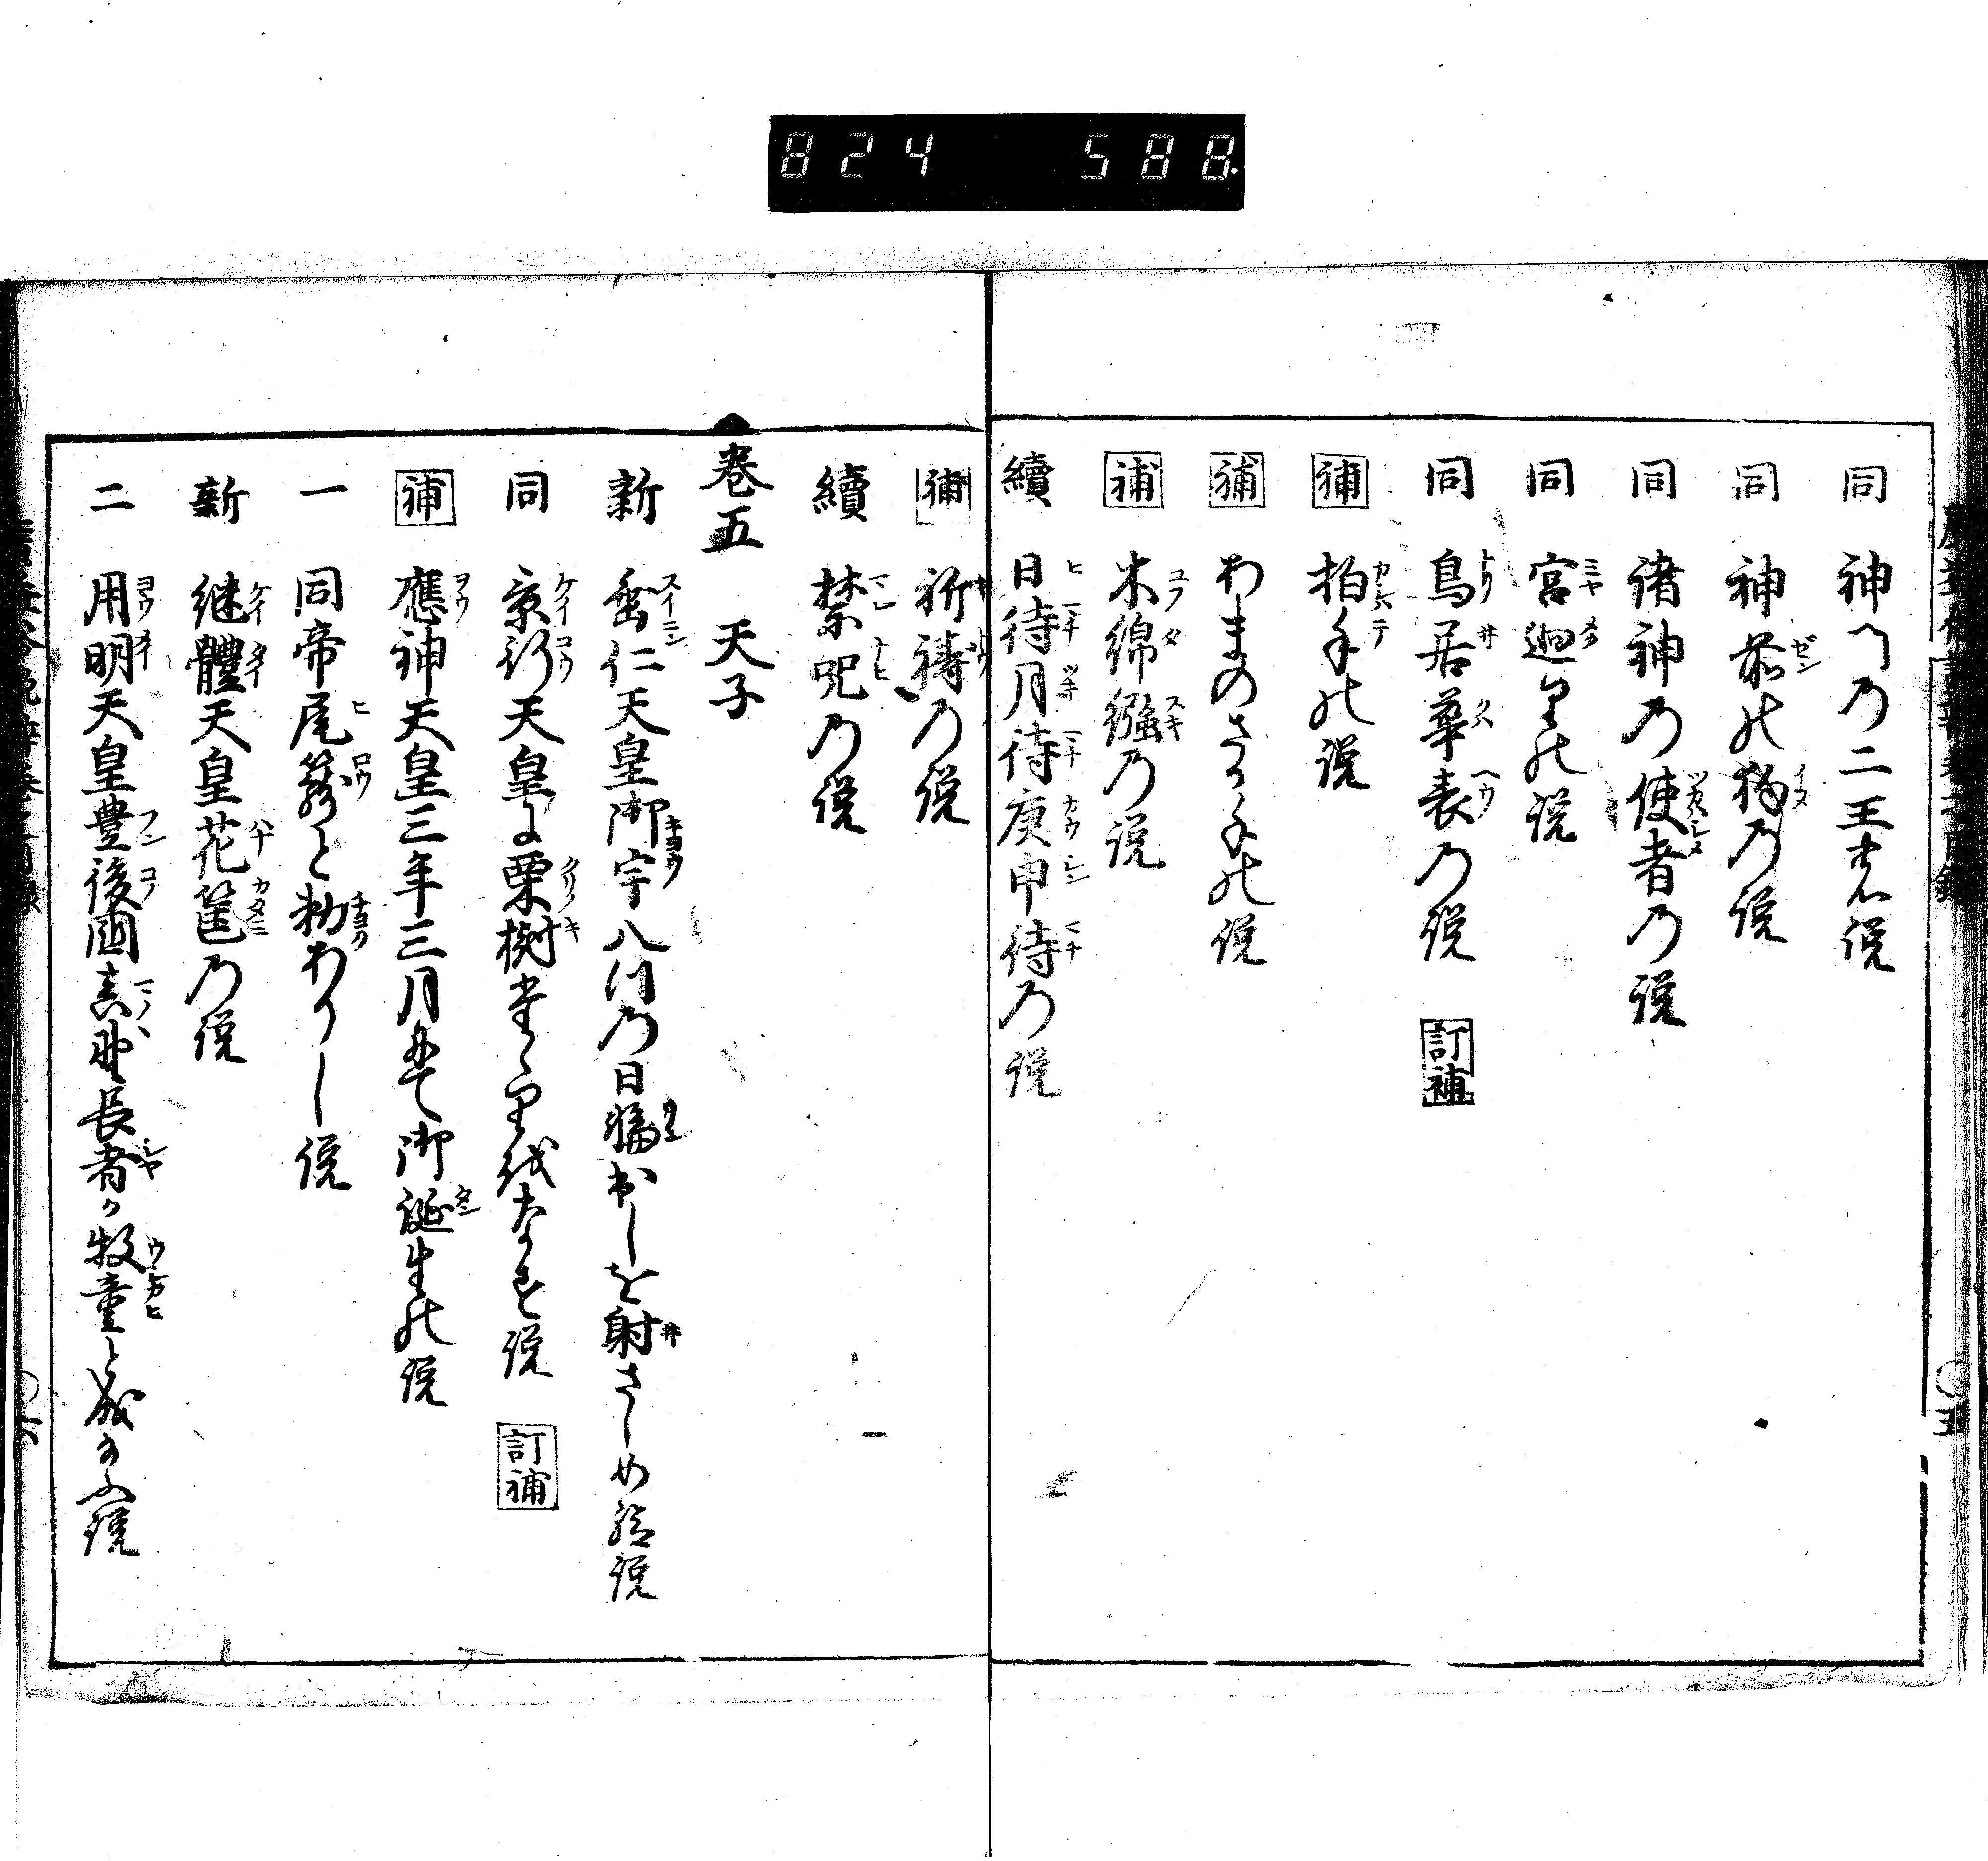 824 588
同 神門乃二王立の説
同 神前の狗乃説
同 諸神乃使者乃説
同 宮廻りの説
同 鳥居華表乃説 訂補
補 拍手の説
補 あまのさか手の説
補 木綿繦乃説
續 日待月待庚申待乃説
補 祈祷乃説
續 禁呪乃説
巻五 天子
新 垂仁天皇御宇八門乃日輪出しを射さしめ給説
同 景行天皇に栗樹たゝりをなす説 訂補
補 應神天皇三年三月にて御誕生の説
一 同帝尾籠と勅ありし説
新 継體天皇花筐乃説
二 用明天皇豊後國真野長者か牧童と成給ふ説